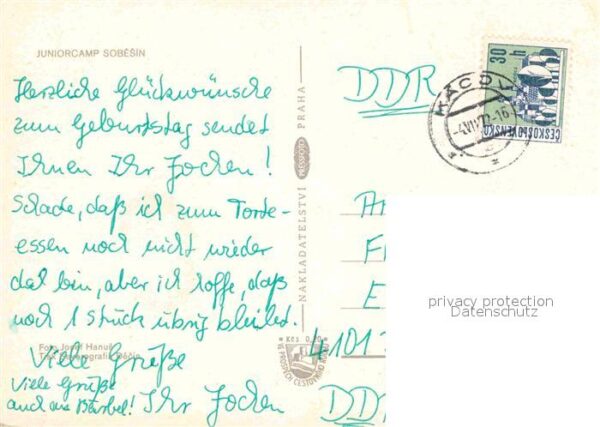 JUNIORCAMP SOBĚŠÍN
Herzliche Glückwünsche
zum Geburtstag sendet
Ihnen Ihr Jochen!
Schade, daß ich zum Torte-
essen noch nicht wieder
da bin, aber ich hoffe, daß
noch 1 Stück übrig bleibt.
Viele Grüße
Ihr Jochen
Viele Grüße
auch an Bärbel!
Foto Josef Hanuš
NAKLADATELSTVÍ PRESSFOTO PRAHA
Kčs 0,20
DDR
KÁCOV
30 h
ČESKOSLOVENSKO
4101
DDR
privacy protection
Datenschutz